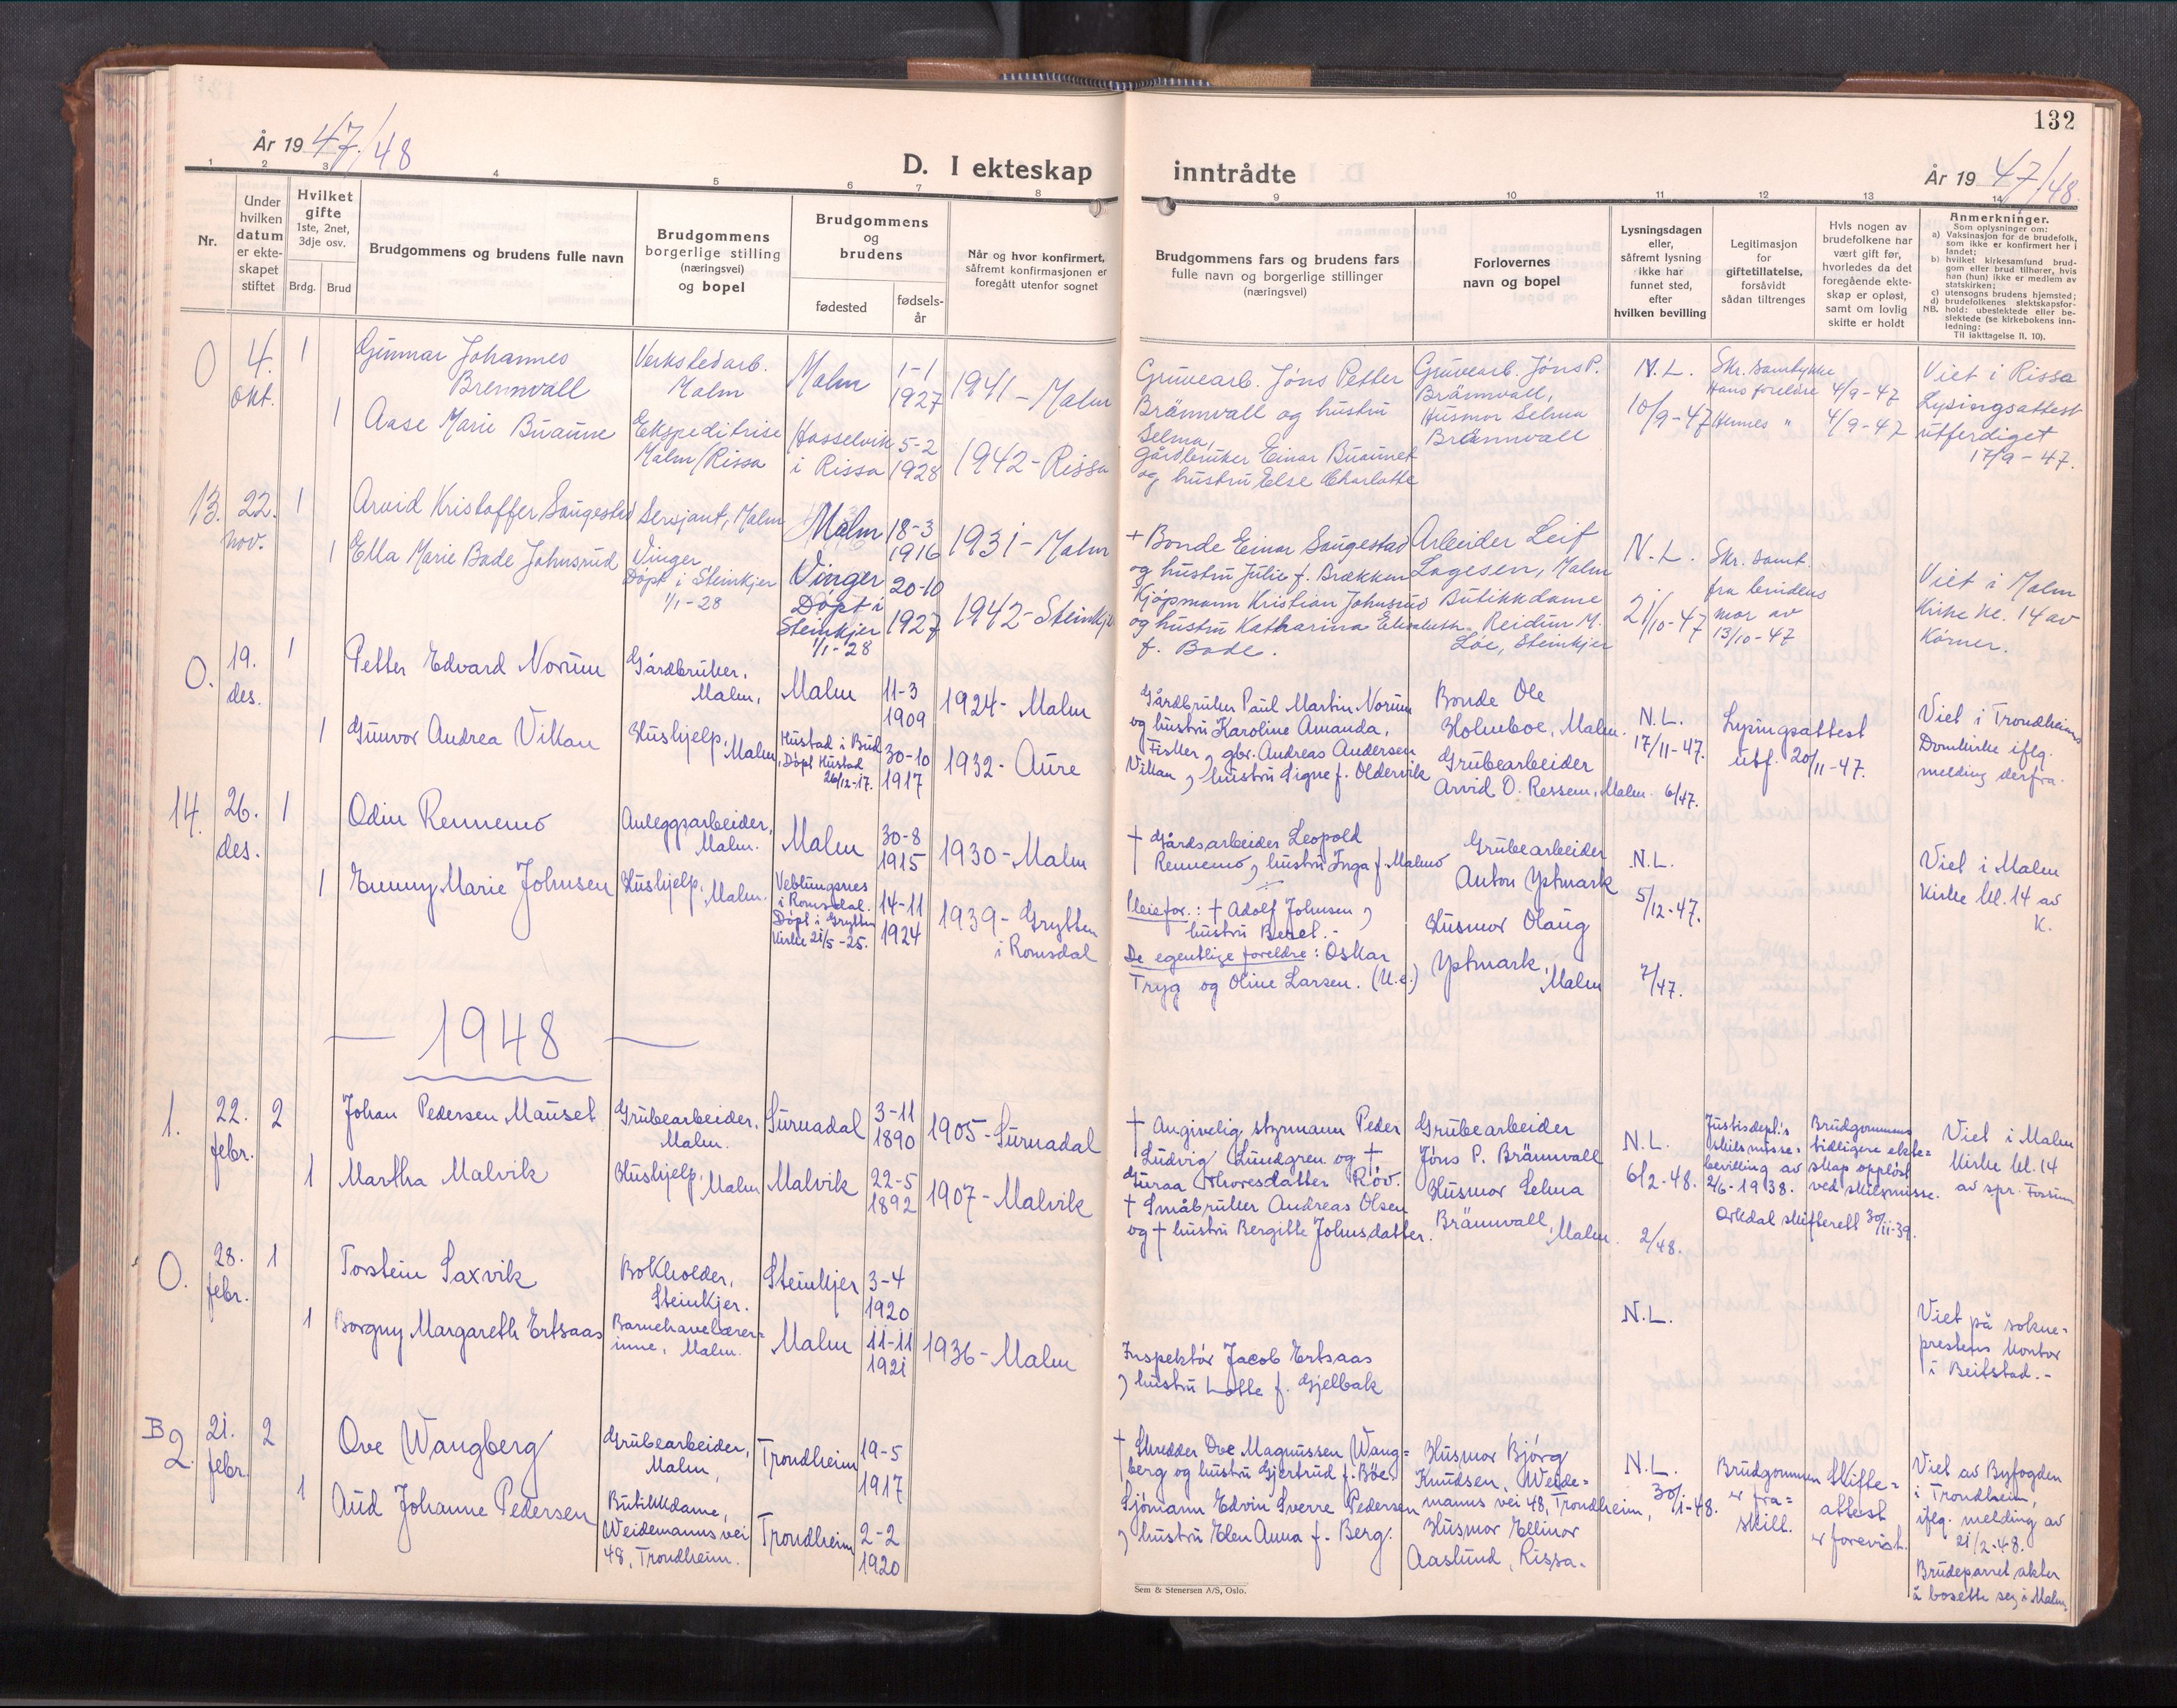 132
År 1947/48
D. I ekteskap
inntrådte
År 1947/48
1 2 3 4 5 6 7 8
9 10 11 12 13 14
Nr.
Under
hvilken
datum
er ekte-
skapet
stiftet
Hvilket
gifte
1ste, 2net,
3dje osv.
Brdg.
Brud
Brudgommens og brudens fulle navn
Brudgommens
borgerlige stilling
(næringsvei)
og bopel
Brudgommens
og
brudens
fødested
fødsels-
år
Når og hvor konfirmert,
såfremt konfirmasjonen er
foregått utenfor sognet
Brudgommens fars og brudens fars
fulle navn og borgerlige stillinger
(næringsvei)
Forlovernes
navn og bopel
Lysningsdagen
eller,
såfremt lysning
ikke har
funnet sted,
efter
hvilken bevilling
Legitimasjon
for
giftetillatelse,
forsåvidt
sådan tiltrenges
Hvis nogen av
brudefolkene har
vært gift før,
hvorledes da det
foregående ekte-
skap er opløst,
samt om lovlig
skifte er holdt
Anmerkninger.
Som oplysninger om:
a) Vaksinasjon for de brudefolk,
som ikke er konfirmert her i
landet;
b) hvilket kirkesamfund brud-
gom eller brud tilhører, hvis
han (hun) ikke er medlem av
statskirken;
c) utensogns brudens hjemsted;
d) brudefolkenes slektskapsfor-
hold: ubeslektede eller be-
slektede (se kirkebokens inn-
ledning:
NB.
Til iakttagelse II. 10).
0
4.
okt.
1
Gunnar Johannes
Brennvall
Verkstedarb.
Malm
Malm
1-1
1927
1941 - Malm
1
Aase Marie Buaune
Ekspeditrise
Malm/Rissa
Hasselvik
i Rissa
5-2
1928
1942 - Rissa
Gruvearb. Jöns Petter
Brännvall og hustru
Selma,
Gårdbruker Einar Buaunet
og hustru Else Charlotte
Gruvearb. Jöns P.
Brännvall,
Husmor Selma
Brännvall
N.L.
10/9-47
Skr. Samtykke
Hans foreldre 4/9-47
Hennes " 4/9-47
Viet i Rissa
Lysingsattest
utferdiget
17/9-47.
13.
22.
nov.
1
Arvid Kristoffer Saugestad
Sersjant, Malm
Malm
18-3
1916
1931 - Malm
1
Ella Marie Bade Johnsrud
Vinger
Döpt i Steinkjer
1/1-28
Vinger
Döpt i
Steinkjer
1/1-28
20-10
1927
1942 - Steinkjer
+ Bonde Einar Saugestad
og hustru Julie f. Brækken
Kjøpmann Kristian Johnsrud
og hustru Katharina Elisabeth
f. Bade.
Arbeider Leif
Lagesen, Malm
Butikkdame
Reidun M.
Löe, Steinkjer
N.L.
21/10-47
Skr. samt.
fra brudens
mor av
13/10-47
Viet i Malm
Kirke kl. 14 av
Körner.
0.
19.
des.
1
Petter Edvard Norum
Gårdbruker,
Malm,
Malm
11-3
1909
1924 - Malm
1
Gunvor Andrea Vikan
Hushjelp, Malm
Hustad i Bud
Döpt Hustad
26/12-17.
30-10
1917
1932 - Aure
Gårdbruker Paul Martin Norum
og hustru Karoline Amanda,
Fisker, gbr. Andreas Andersen
Vikan, hustru Signe f. Oldervik
Bonde Ole
Holmboe, Malm.
Grubearbeider
Arvid O. Ressem, Malm
N.L.
17/11-47.
6/47.
Lysingsattest
utf. 20/11-47.
Viet i Trondheims
Domkirke iflg.
melding derfra.
14.
26.
des.
1
Odin Rennemo
Anleggsarbeider,
Malm.
Malm
30-8
1915
1930 - Malm
1
Emmy Marie Johnsen
Hushjelp, Malm.
Veblungsnes
i Romsdal.
Döpt i Grytten
Kirke 21/5-25.
14-11
1924
1939 - Grytten
i Romsdal
† Gårdsarbeider Leopold
Rennemo, hustru Inga f. Malmo
Pleiefor.: † Adolf Johnsen,
hustru Beret.-
De egentlige foreldre: Oskar
Tryg og Oline Larsen. (U.e.)
Grubearbeider
Anton Ystmark
Husmor Olaug
Ystmark,
Malm
N.L.
5/12-47.
7/47.
Viet i Malm
Kirke kl. 14 av
K.
— 1948 —
1.
22.
febr.
2
Johan Pedersen Mauset
Grubearbeider,
Malm.
Surnadal
3-11
1890
1905 - Surnadal
1
Martha Malvik
Hushjelp, Malm
Malvik
22-5
1892
1907 - Malvik
† Angivelig styrmann Peder
Ludvig Lundgren og †
Guraa Thoresdatter Röv.
† Småbruker Andreas Olsen
og † hustru Bergitte Johnsdatter.
Grubearbeider
Jöns P. Brännvall
Husmor Selma
Brännvall, Malm.
N.L.
6/2-48.
2/48.
Justisdept.s
skilsmisse-
bevilling av
2/6-1938.
Brudgommens
tidligere ekte-
skap opplöst
ved skilsmisse.
Orkdal skifterett 30/11-39.
Viet i Malm
Kirke kl. 14
av spr. Fossum
0.
28.
febr.
1
Torstein Saxvik
Bokholder,
Steinkjer.
Steinkjer
3-4
1920
1
Borgny Margareth Ertsaas
Barnehavelærer-
inne, Malm.
Malm
11-11
1921
1936 - Malm
Inspektör Jacob Ertsaas
, hustru Lotte f. Gjelbak
N.L.
Viet på sokne-
prestens kontor
i Beitstad.-
B
2.
21.
febr.
2
Ove Wangberg
Grubearbeider,
Malm,
Trondheim
19-5
1917
1
Aud Johanne Pedersen
Butikkdame,
Weidemanns vei
48, Trondheim.
Trondheim
2-2
1920
† Skredder Ove Magnussen Wang-
berg og hustru Gjertrud f. Böe.
Sjömann Edvin Sverre Pedersen
, hustru Elen Anna f. Berg.
Husmor Bjórg
Knudsen, Weide-
manns vei 48, Trondheim,
Husmor Ellinor
Aaslund, Rissa.
N.L.
30/1-48.
Brudgommen
er fra-
skilt.
Skifte-
attest
er forevist.
Viet av Byfogden
i Trondheim,
iflg. melding av
21/2-48.
Brudeparret akter
å bosette seg i Malm.
Sem & Stenersen A/S, Oslo.